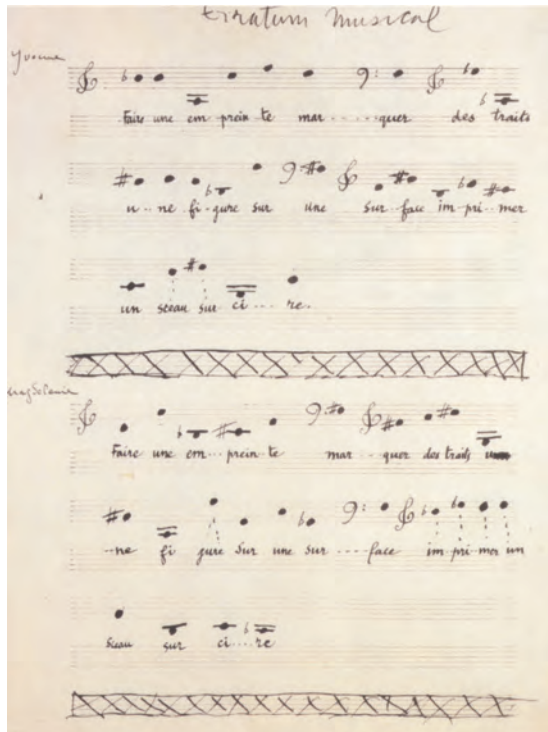 Erratum musical
Yvonne
Faire une em prein te mar.....quer des traits
u...ne fi-gure sur une sur-face im-pri-mer
un sceau sur ci....re.
Magdeleine
Faire une em...prein te mar...quer des traits u
-ne fi gure sur une sur....face im-pri-mer un
sceau sur ci....re